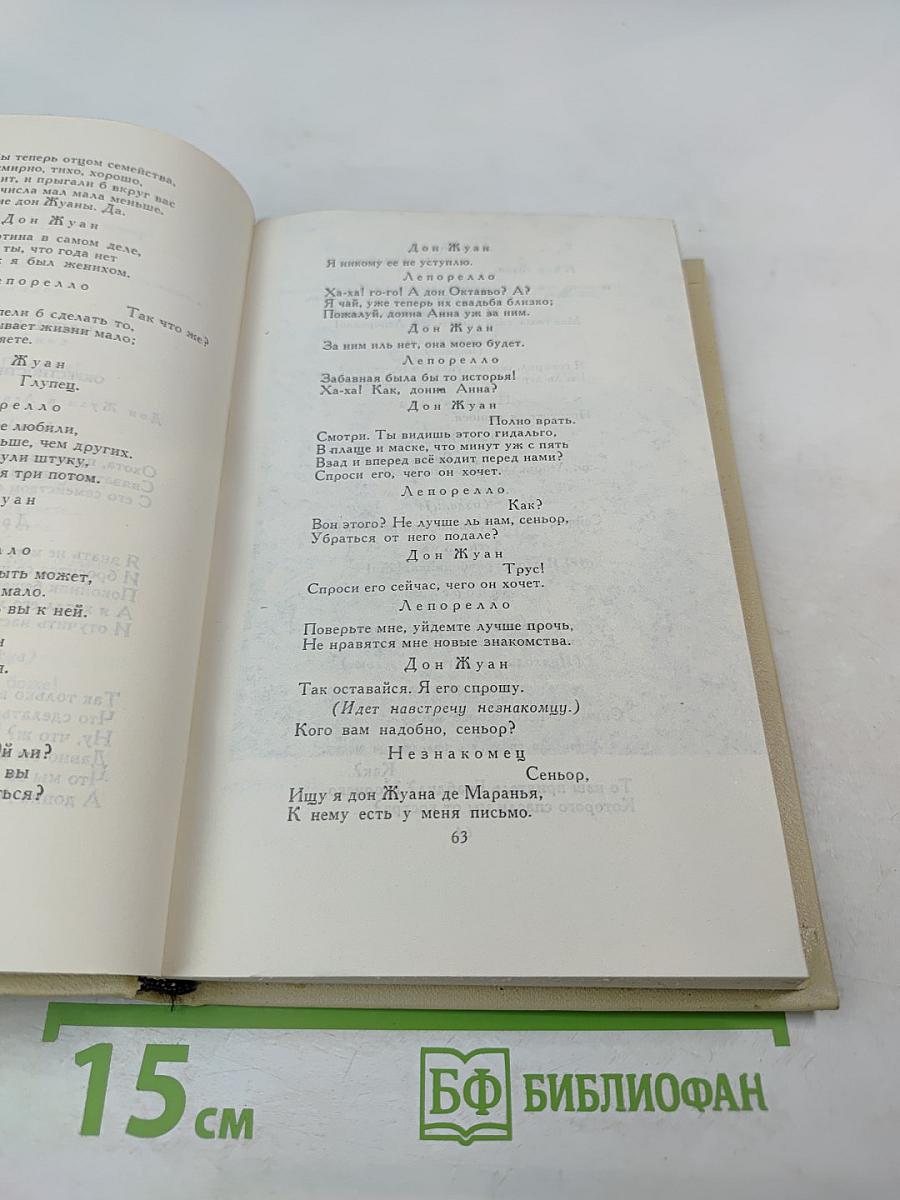 ы теперь отцом семейства,
смирно, тихо, хорошо,
ит, и прыгали б вкруг вас
числа мал мала меньше.
ие дон Жуаны. Да.
Дон Жуан
ртина в самом деле,
ты, что года нет
к я был женихом.
епорелло
Так что же?
пели б сделать то,
ывает жизни мало;
яете.
Жуан
Глупец.
орелло
е любили,
ьше, чем других.
ули штуку,
я три потом.
уан
лло
ыть может,
мало.
ь вы к ней.
н
я.
Ой ли?
вы
ться?
Дон Жуан
Я никому ее не уступлю.
Лепорелло
Ха-ха! го-го! А дон Октавьо? А?
Я чай, уже теперь их свадьба близко;
Пожалуй, донна Анна уж за ним.
Дон Жуан
За ним иль нет, она моею будет.
Лепорелло
Забавная была бы то исторья!
Ха-ха! Как, донна Анна?
Дон Жуан
Полно врать.
Смотри. Ты видишь этого гидальго,
В плаще и маске, что минут уж с пять
Взад и вперед всё ходит перед нами?
Спроси его, чего он хочет.
Лепорелло
Как?
Вон этого? Не лучше ль нам, сеньор,
Убраться от него подале?
Дон Жуан
Трус!
Спроси его сейчас, чего он хочет.
Лепорелло
Поверьте мне, уйдемте лучше прочь,
Не нравятся мне новые знакомства.
Дон Жуан
Так оставайся. Я его спрошу.
(Идет навстречу незнакомцу.)
Кого вам надобно, сеньор?
Незнакомец
Сеньор,
Ищу я дон Жуана де Маранья,
К нему есть у меня письмо.
63
15 см
БФ БИБЛИОФАН